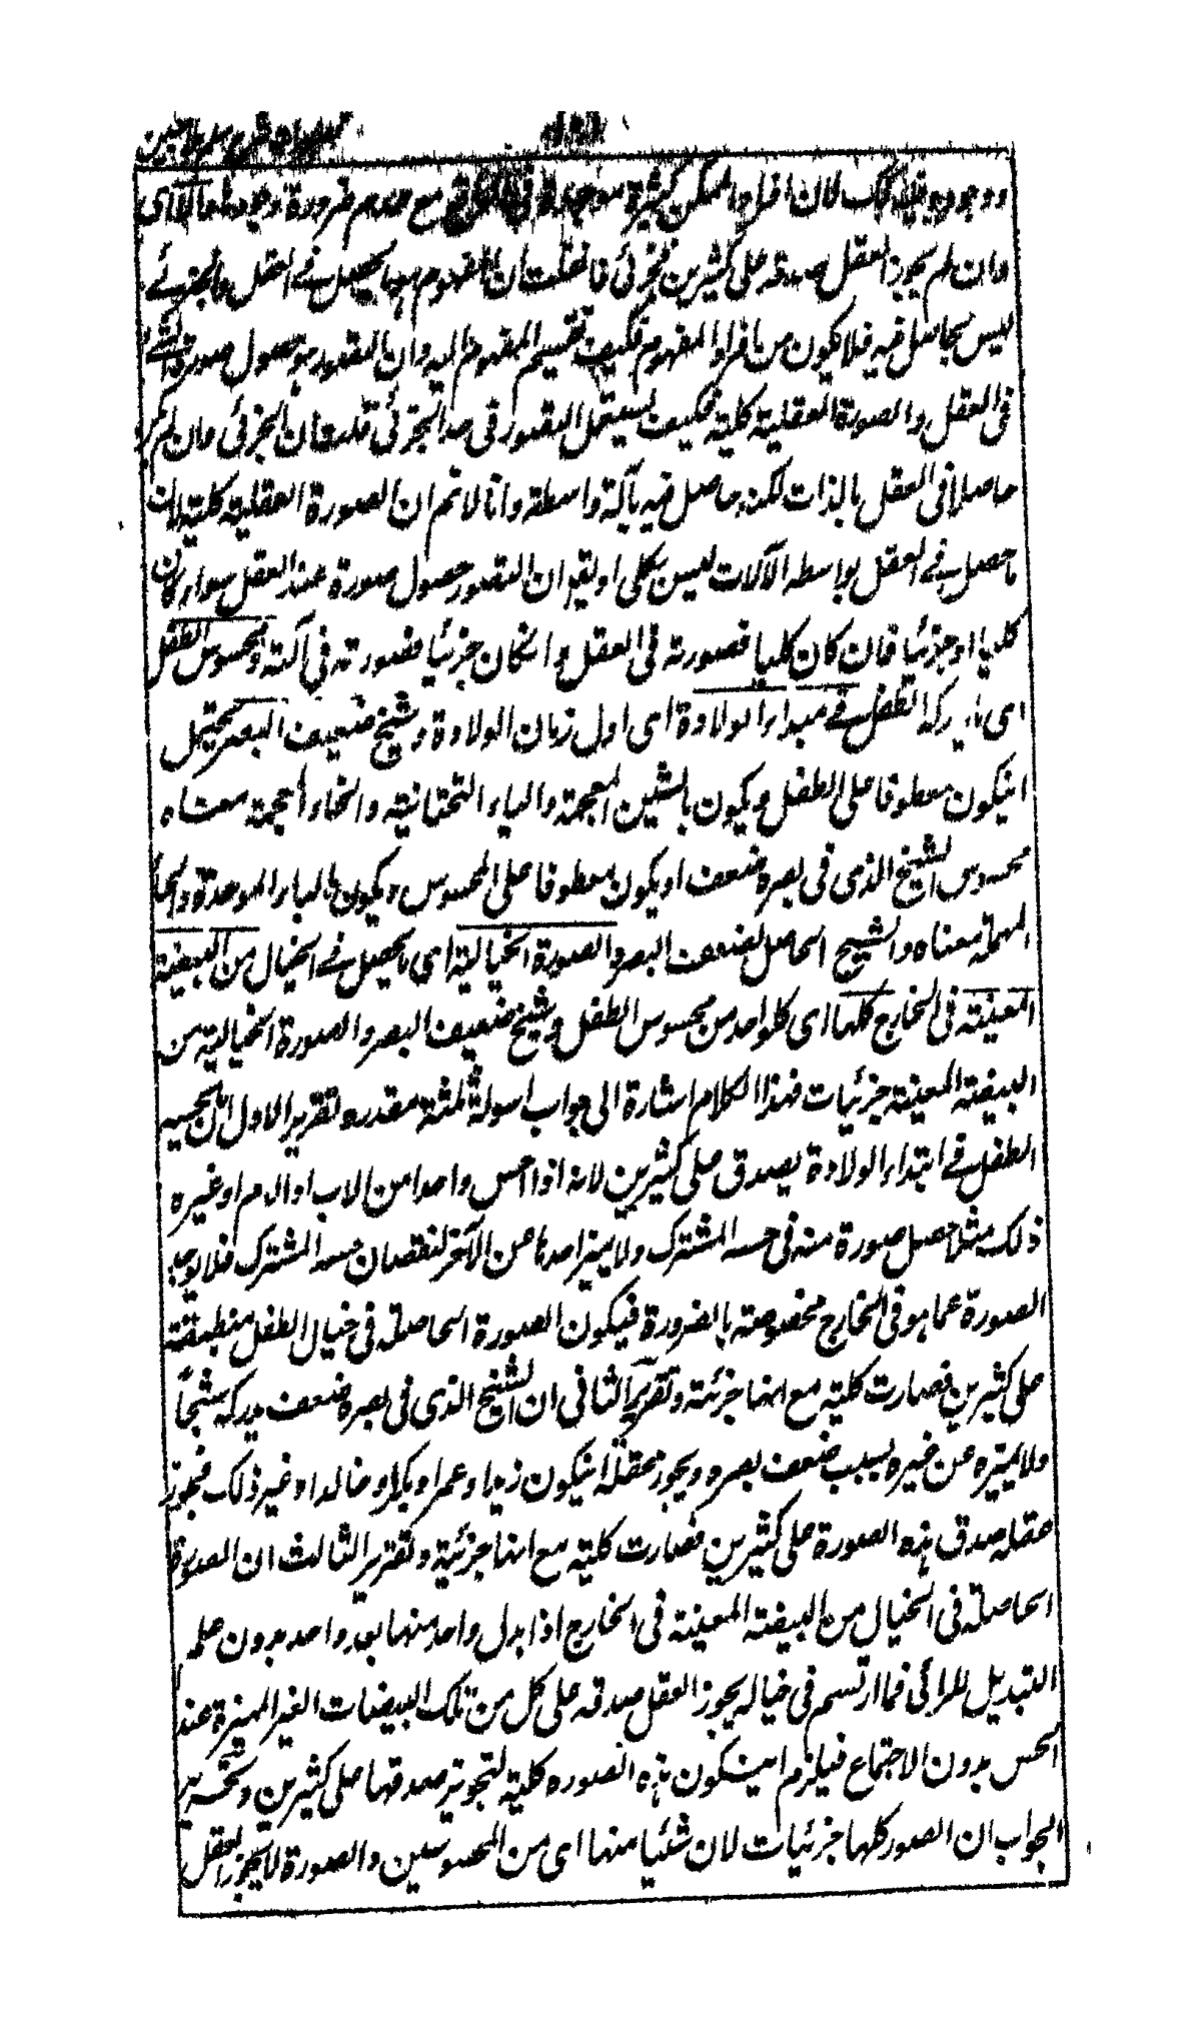 مع عدم ضرورة وجودها والا اى
وان لم يجوز العقل صدقه على كثيرين فجزئى فانقلت ان المفهوم ما يحصل فى العقل والجزئے
ليس بحاصل فيه فلا يكون من افراد المفهوم فكيف تقسيم المفهوم اليه وان التصور هو حصول صورة الشئے
فى العقل والصورة العقلية كلية فكيف يستعمل التصور فى حد الجزئى قلت ان الجزئى وان لم يكن
حاصلا فى العقل بالذات لكنه حاصل فيه بآلة وواسطة وانا لا نم ان الصورة العقلية كلية لان
ما حصل فے العقل بواسطه الآلات ليس بكلى او يقم ان التصور حصول صورة عند العقل سواء كان
كليا او جزئيا فان كان كليا فصورته فى العقل وانكان جزئيا فصورته فى آلته ومحسوس الطفل
اى ما يدركه الطفل فے مبداء الولادة اى اول زمان الولادة وشيخ ضعيف البصر يحتمل
انيكون معطوفا على الطفل ويكون بالشين المعجمة والياء التحتانية والخاء المعجمة معناه
محسوس الشيخ الذى فى بصره ضعف او يكون معطوفا على المحسوس ويكون بالباء الموحدة والحاء
المهملة معناه والشبح الحاصل لضعف البصر والصورة الخيالية اى ما يحصل فے الخيال من البيضة
المعينة فى الخارج كلها اى كلواحد من محسوس الطفل وشيخ ضعيف البصر والصورة الخيالية من
البيضة المعينة جزئيات فهذا الكلام اشارة الى جواب اسولة ثلثة مقدره تقرير الاول ان ما يحسه
الطفل فے ابتداء الولادة يصدق على كثيرين لانه اذا احس واحدا من الاب او الام او غيره
ذلك مثلا حصل صورة منه فى حسه المشترك ولا يميز احدها عن الآخر لنقصان حسه المشترك فلا يوجد
الصورة عما هو فى الخارج مخصوصة بالضرورة فيكون الصورة الحاصلة فى خيال الطفل منطبقة
على كثيرين فصارت كلية مع انها جزئية وتقرير الثانى ان الشيخ الذى فى بصره ضعف يدركه شبحاً
ولا يميزه عن غيره بسبب ضعف بصره ويجوز عقله انيكون زيدا وعمرا وبكرا وخالدا وغير ذلك فيجوز
عقله صدق هذه الصورة على كثيرين فصارت كلية مع انها جزئية وتقرير الثالث ان الصورة
الحاصلة فى الخيال من البيضة المعينة فى الخارج اذا بدل واحد منها بعد واحد بدون علم
التبديل للرائى فما ارتسم فى خياله يجوز العقل صدقه على كل من تلك البيضات الغير المميزة عند
الحس بدون الاجتماع فيلزم انيكون هذه الصوره كلية لتجويز صدقها على كثيرين وتحرير
الجواب ان الصور كلها جزئيات لان شئيا منها اى من المحسوسين والصورة لا يجوز العقل